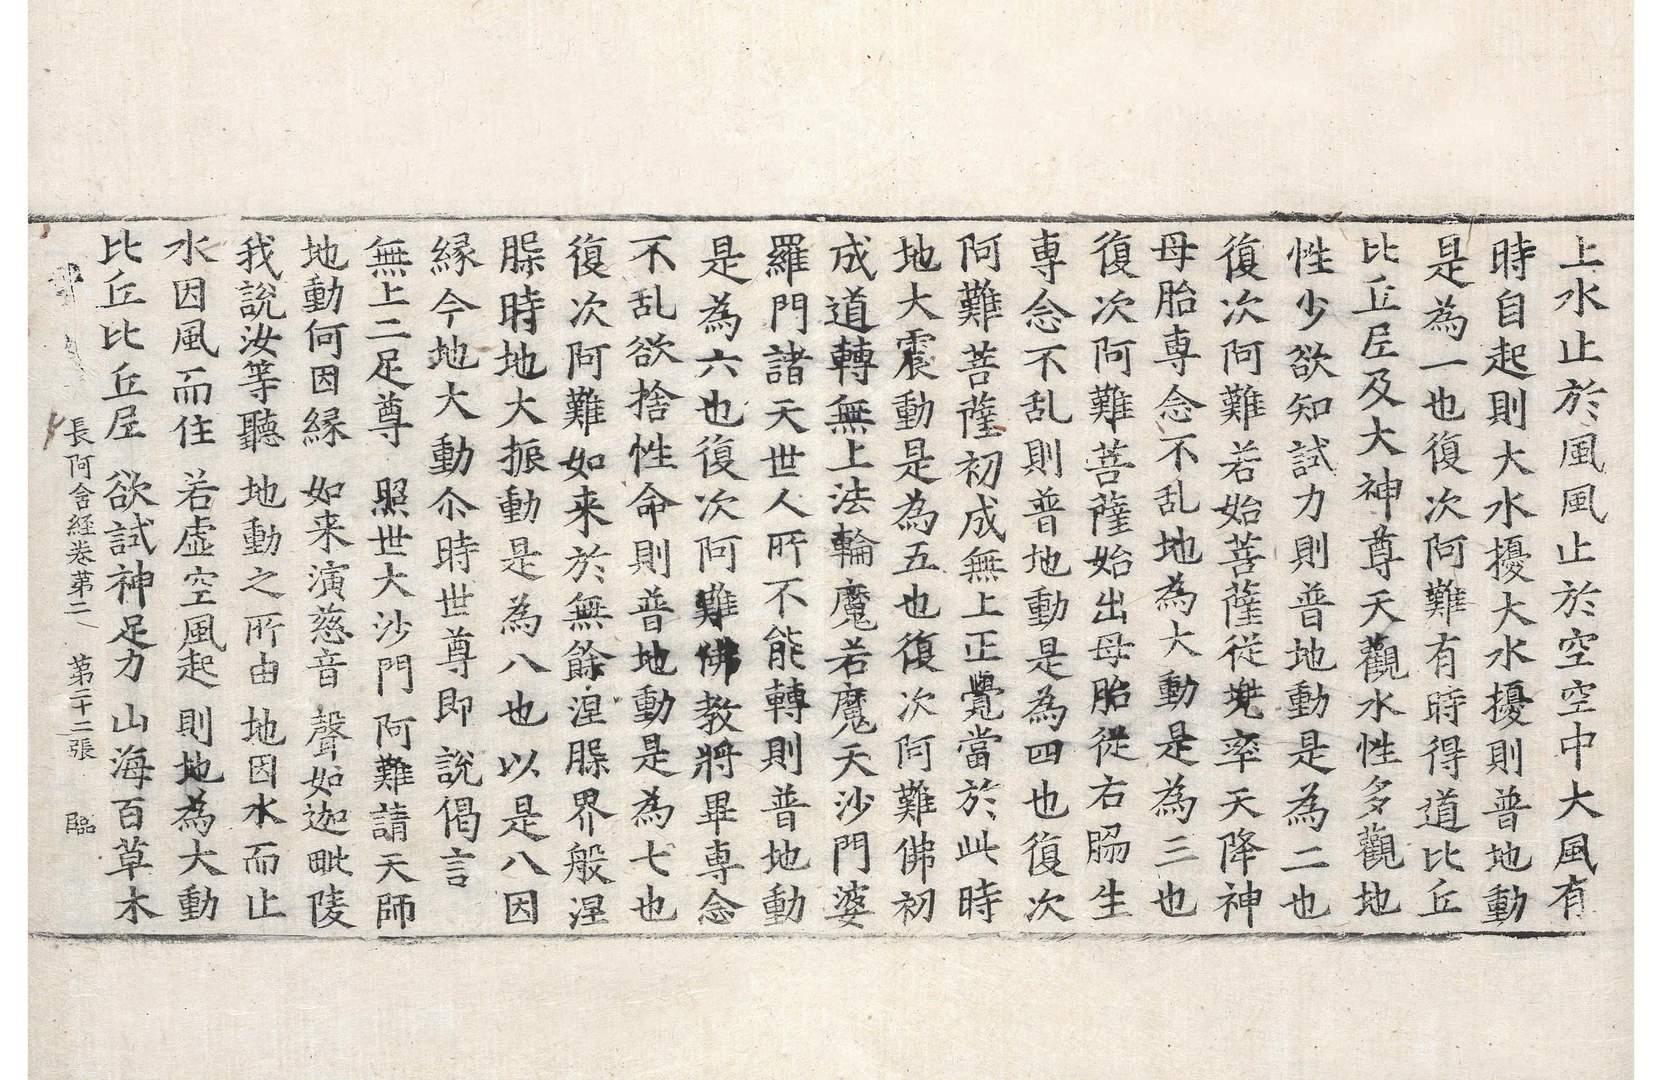 上水止於風風止於空空中大風有
時自起則大水擾大水擾則普地動
是為一也復次阿難有時得道比丘
比丘尼及大神尊天觀水性多觀地
性少欲知試力則普地動是為二也
復次阿難若始菩薩從兠率天降神
母胎専念不乱地為大動是為三也
復次阿難菩薩始出母胎從右脇生
専念不乱則普地動是為四也復次
阿難菩薩初成無上正覺當於此時
地大震動是為五也復次阿難佛初
成道轉無上法輪魔若魔天沙門婆
羅門諸天世人所不能轉則普地動
是為六也復次阿難佛教將畢専念
不乱欲捨性命則普地動是為七也
復次阿難如来於無餘涅槃界般涅
槃時地大振動是為八也以是八因
縁今地大動尒時世尊即說偈言
無上二足尊 照世大沙門 阿難請天師
地動何因縁 如来演慈音 聲如迦毗陵
我說汝等聽 地動之所由 地因水而止
水因風而住 若虚空風起 則地為大動
比丘比丘尼 欲試神足力 山海百草木
長阿含経卷第二 第二十二張 臨